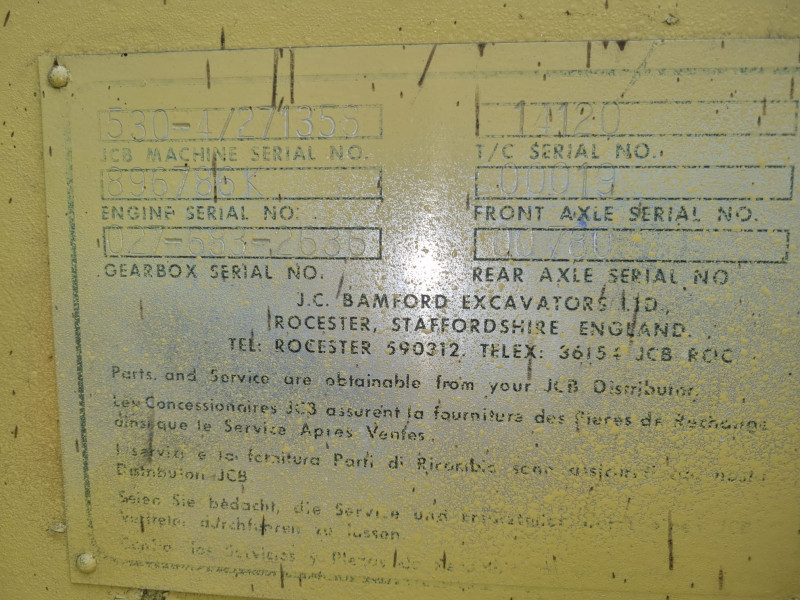 530-4/271355 14120
JCB MACHINE SERIAL NO. T/C SERIAL NO.
896786K 00013
ENGINE SERIAL NO. FRONT AXLE SERIAL NO.
027-653-2636
GEARBOX SERIAL NO. REAR AXLE SERIAL NO
J.C. BAMFORD EXCAVATORS LTD.,
ROCESTER, STAFFORDSHIRE ENGLAND.
TEL: ROCESTER 590312. TELEX: 36154 JCB ROC
Parts, and Service are obtainable from your JCB Distributor.
Les Concessionaires JCB assurent la fourniture des Pieres de Rechange
ainsi que le Service Apres Ventes.
I servizi e la fornitura Parti di Ricambio sono
Distributori JCB
Seien Sie bedacht, die Service und
Vertreter durchfuhren zu lassen.
los Servicios y Piezas